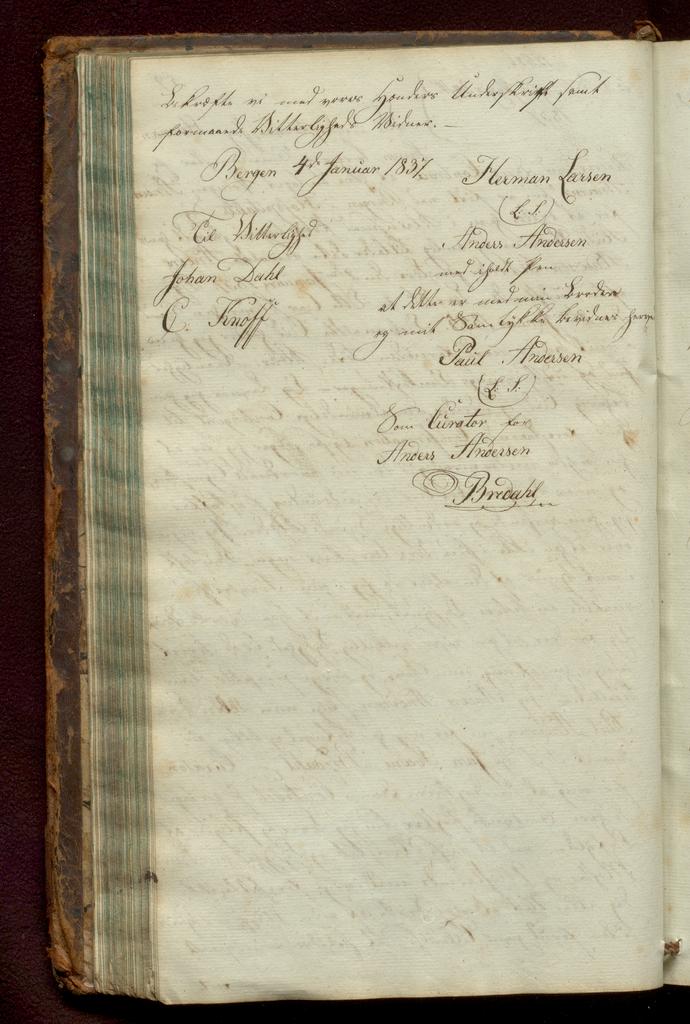 bekræfte vi med vores Hænders Underskrift samt
formaaede Vitterligheds Vidner. —
Bergen 4de Januar 1837
Herman Larsen
(L. S.)
Til Vitterlighed
Johan Dahl
C. Knoff
Anders Andersen
med iholdt Pen
at dette er med min Broders
og mit Samtykke bevidnes herved
Paul Andersen
(L. S.)
Som Curator for
Anders Andersen
Bredahl